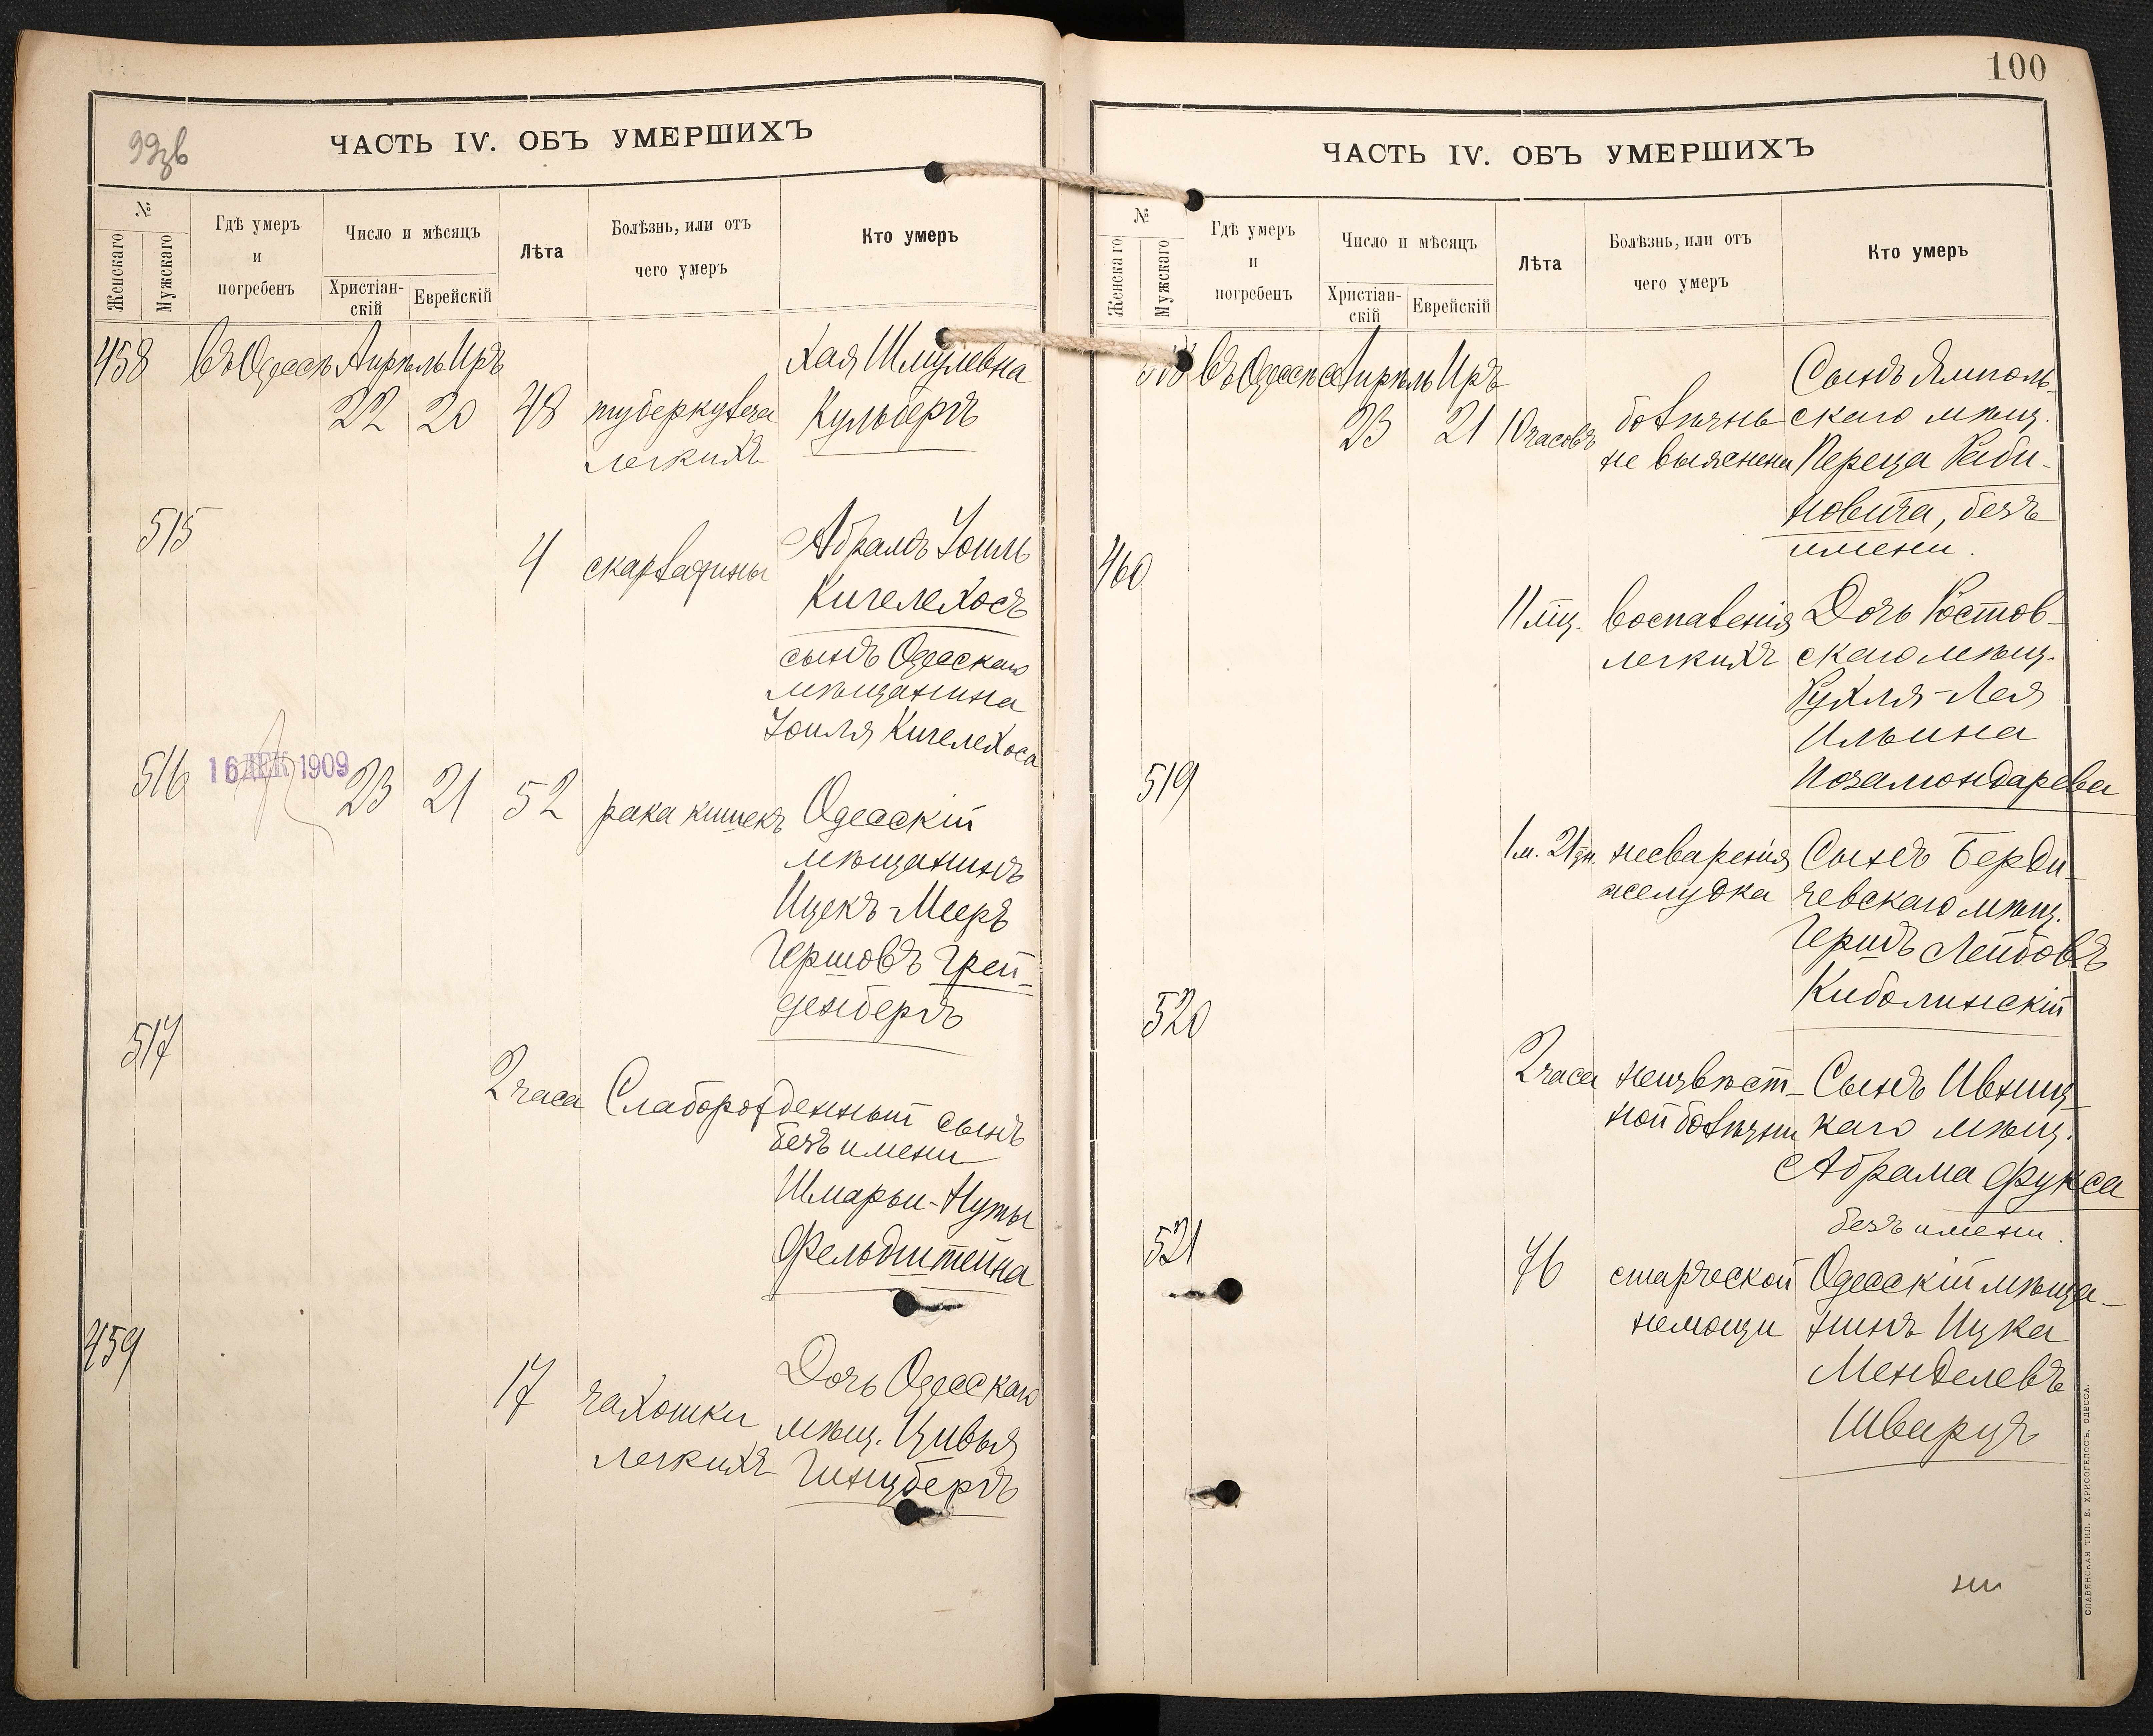 99зв
ЧАСТЬ IV. ОБЪ УМЕРШИХЪ
№
Женскаго
Мужскаго
Гдѣ умеръ
и
погребенъ
Число и мѣсяцъ
Христіан-
скій
Еврейскій
Лѣта
Болѣзнь, или отъ
чего умеръ
Кто умеръ
458 Въ Одессѣ Апрѣль Иръ Хая Шмулевна
22 20 48 туберкулеза Кульбергъ
легкихъ
515 Абрамъ Іоиль
4 скарлатины Кигелехосъ
сынъ Одесскаго
мѣщанина
Іоиля Кигелехоса
516 16 ДЕК 1909 23 21 52 рака кишекъ Одесскій
мѣщанинъ
Ицекъ-Мееръ
Гершовъ Грей-
денбергъ
517
2 часа Слаборожденный сынъ
безъ имени
Шмарьи-Нуты
Фельдштейна
459
17 чахотки Дочь Одесскаго
легкихъ мѣщ. Цивья
Гинцбергъ
100
ЧАСТЬ IV. ОБЪ УМЕРШИХЪ
№
Женскаго
Мужскаго
Гдѣ умеръ
и
погребенъ
Число и мѣсяцъ
Христіан-
скій
Еврейскій
Лѣта
Болѣзнь, или отъ
чего умеръ
Кто умеръ
518 Въ Одессѣ Апрѣль Иръ Сынъ Ямполь-
23 21 10 часовъ болѣзнь скаго мѣщ.
не выяснена Переца Раби-
новича, безъ
имени.
460
11 мц. воспаленія Дочь Ростов-
легкихъ скаго мѣщ.
Рухля-Лея
Ильина
519
1 м. 21 дн. несваренія Сынъ Берди-
желудка чевскаго мѣщ.
Гершъ Лейбовъ
520 Киболинскій
2 часа неизвѣст- Сынъ Ивниц-
ной болѣзни каго мѣщ.
Абрама Фукса
безъ имени.
521
76 старческой Одесскій мѣща-
немощи нинъ Ицка
Менделевъ
Шварцъ
СЛАВЯНСКАЯ ТИП. Е. ХРИСОГЕЛОСЪ, ОДЕССА.